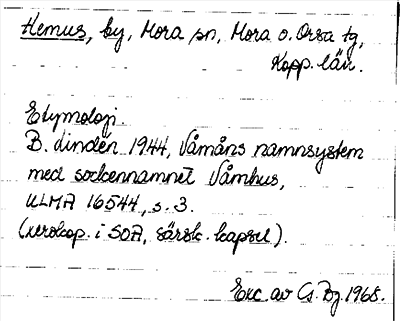 Hemus, by, Mora sn, Mora o. Orsa tg,
Kopp. län.
Etymologi
B. Lindén 1944, Våmåns namnsystem
med sockennamnet Våmhus,
ULMA 16544, s. 3.
(xerokop. i SOA, särsk. kapsel).
Exc. av G. Bg. 1965.